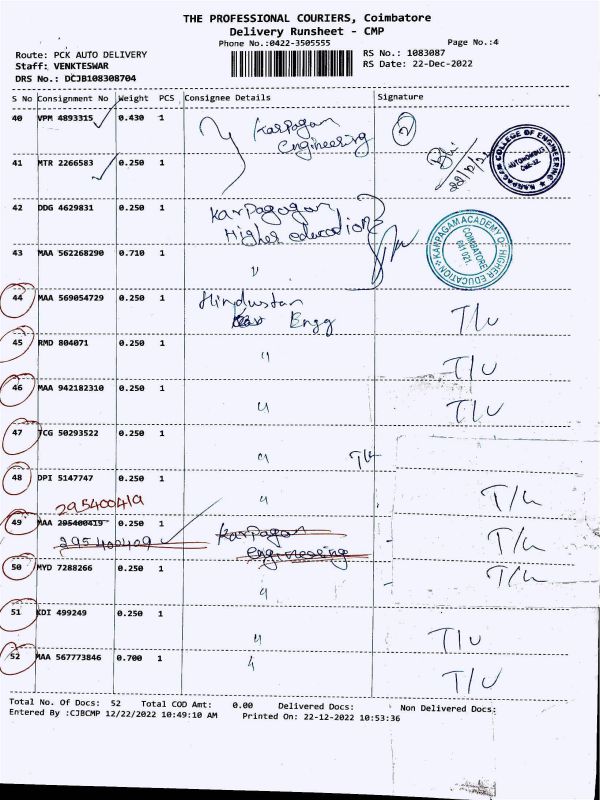 THE PROFESSIONAL COURIERS, Coimbatore
Delivery Runsheet - CMP
Phone No.:0422-3505555 Page No.:4
Route: PCK AUTO DELIVERY RS No.: 1083087
Staff: VENKTESWAR RS Date: 22-Dec-2022
DRS No.: DCJB108308704
S No Consignment No Weight PCS Consignee Details Signature
40 VPM 4893315 0.430 1 Karpagam Engineering 2
41 MTR 2266583 0.250 1
KARPAGAM COLLEGE OF ENGINEERING
AUTONOMOUS
42 DDG 4629831 0.250 1 Higher education
43 MAA 562268290 0.710 1 〃
KARPAGAM ACADEMY OF HIGHER EDUCATION
COIMBATORE
641 021.
44 MAA 569054729 0.250 1 Hindustan Engg T/u
45 RMD 804071 0.250 1 〃 T/u
46 MAA 942182310 0.250 1 〃 T/u
47 TCG 50293522 0.250 1 〃 T/u
48 DPI 5147747 0.250 1 〃 T/u
295400419
49 MAA 295400419 0.250 1 Karpagam Engineering T/u
295400409
50 MYD 7288266 0.250 1 〃 T/u
51 KDI 499249 0.250 1 〃 T/u
52 MAA 567773846 0.700 1 〃 T/u
Total No. Of Docs: 52 Total COD Amt: 0.00 Delivered Docs: Non Delivered Docs:
Entered By :CJBCMP 12/22/2022 10:49:10 AM Printed On: 22-12-2022 10:53:36